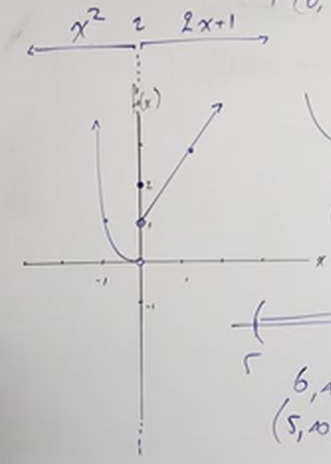 x² 2 2x+1
f(x)
2
1
-1 1 x
-1
5
6, 1
(5, 10